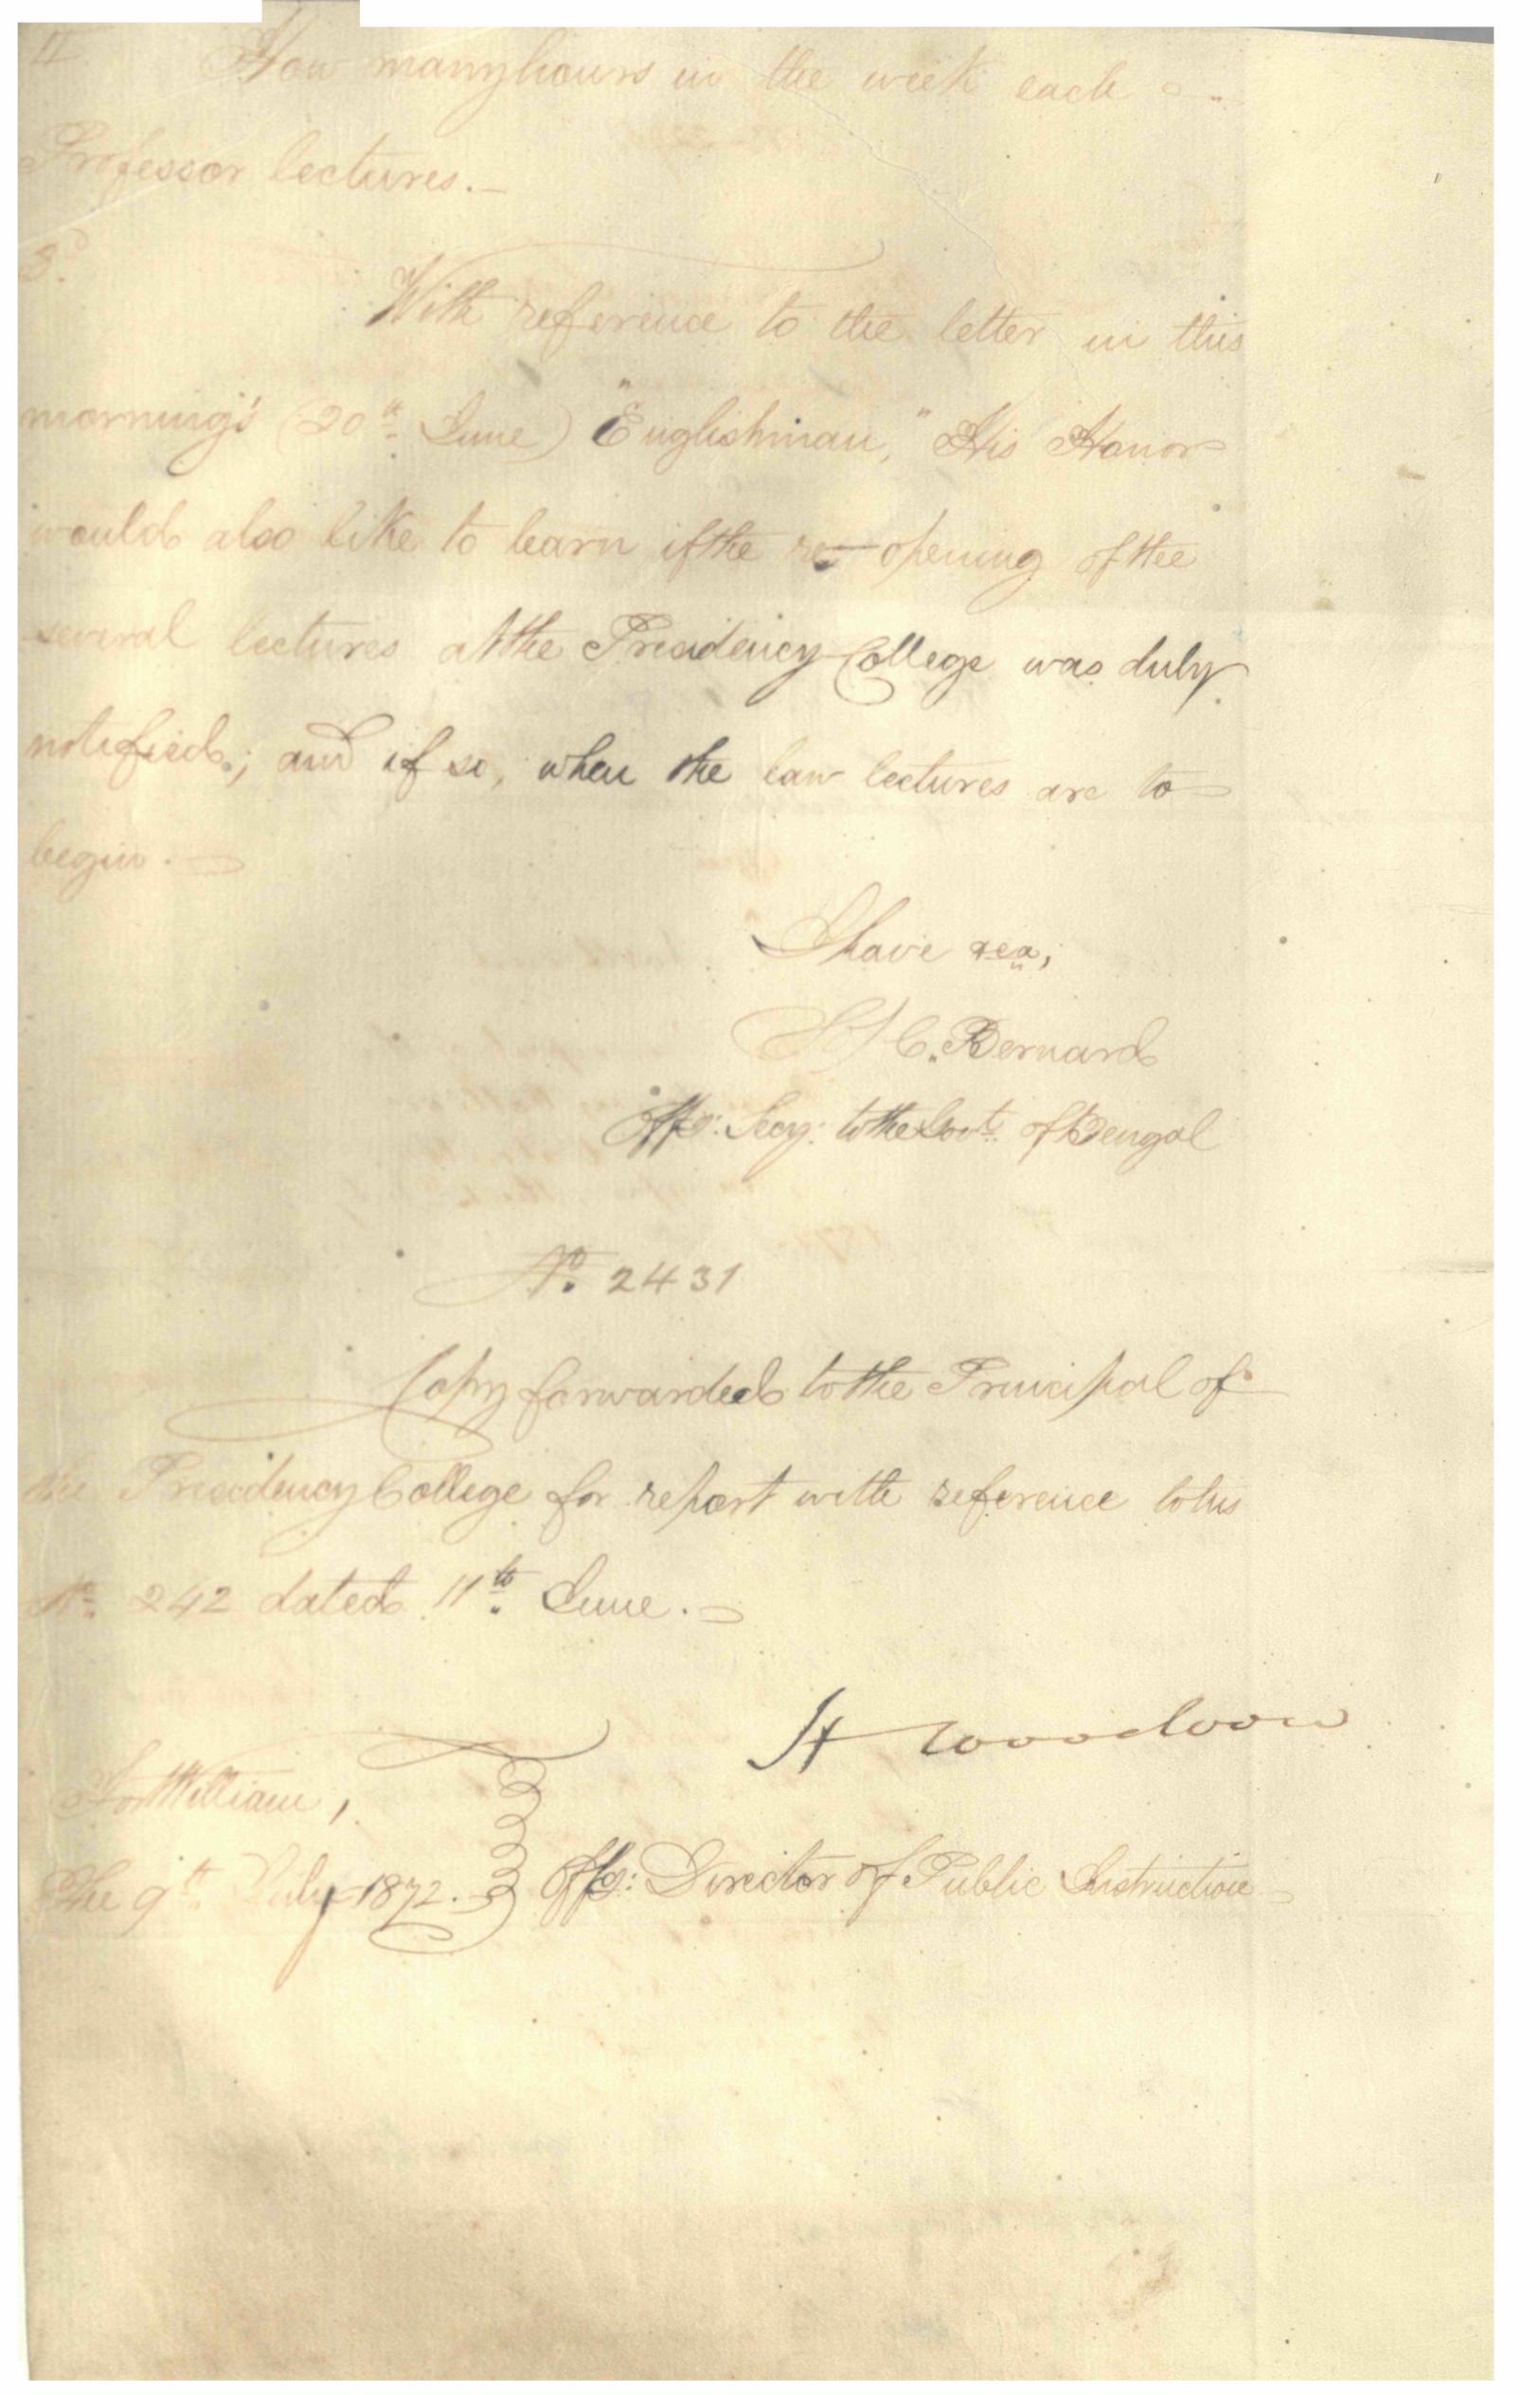 II How many hours in the week each
Professor lectures.—
3.
With reference to the letter in this
morning's (20th June) "Englishman," His Honor
would also like to learn if the re-opening of the
several lectures at the Presidency College was duly
notified; and if so, when the law lectures are to
begin.—
I have &ca,
Sd/ C. Bernard
Offg: Secy: to the Govt. of Bengal
No. 2431
Copy forwarded to the Principal of
the Presidency College for report with reference to his
No. 242 dated 11th June.—
H Woodrow
Fort William,
The 9th July 1872.
Offg: Director of Public Instruction